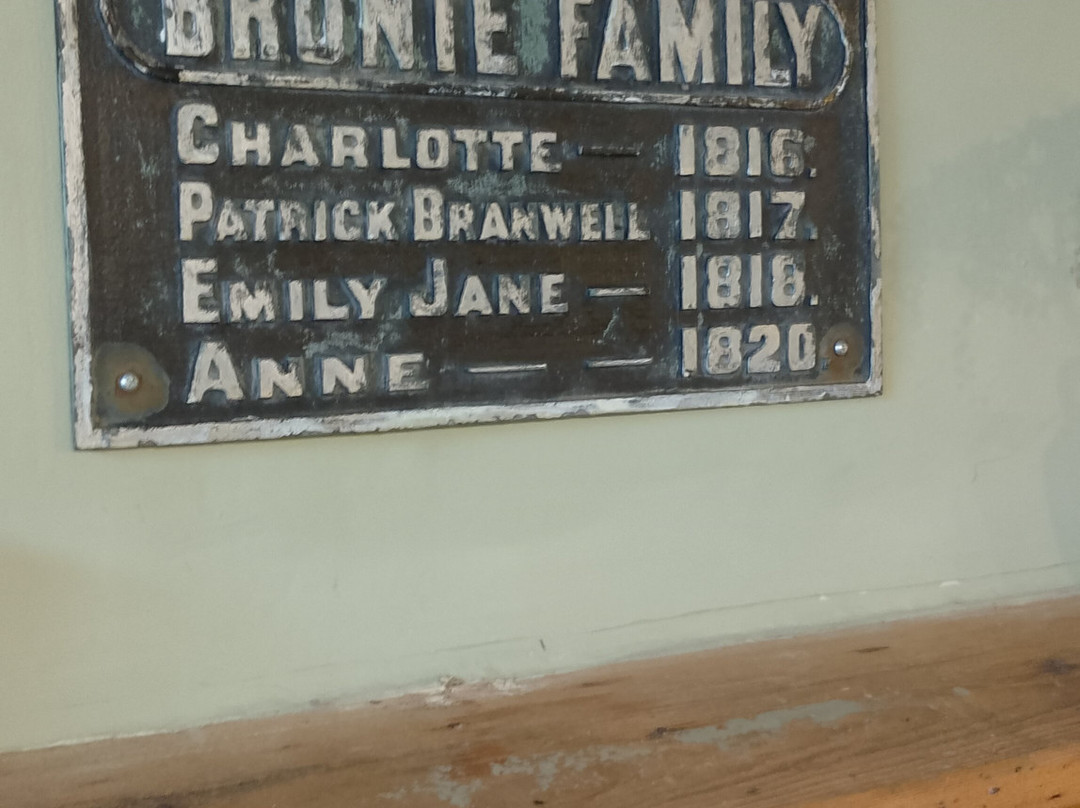 BRONTE FAMILY
CHARLOTTE — 1816.
PATRICK BRANWELL 1817.
EMILY JANE — 1818.
ANNE — — 1820